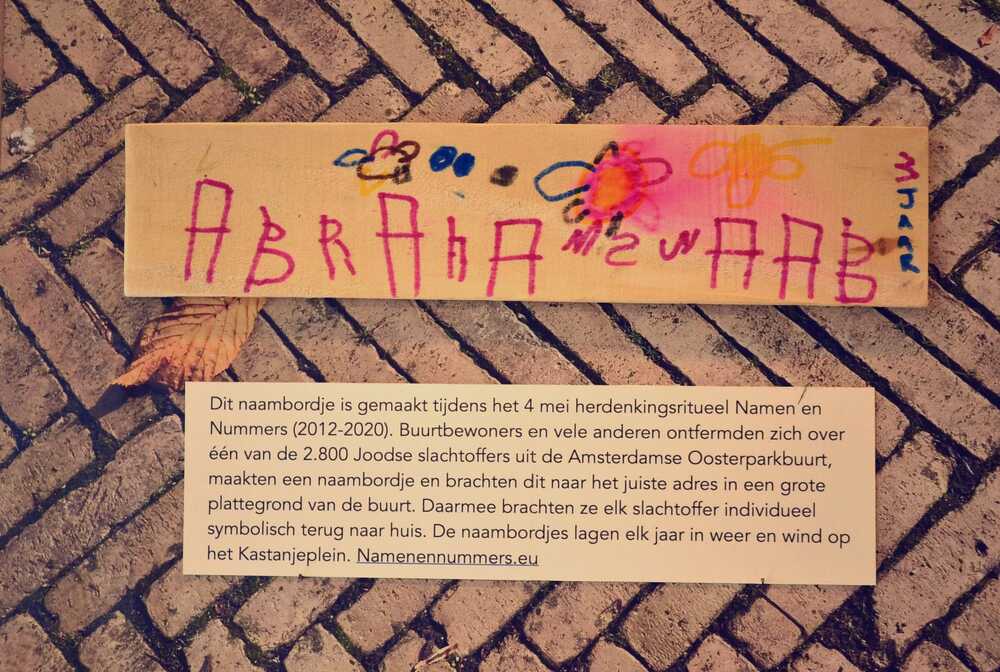 ABRAhAM SWAAB
3 JAAR
Dit naambordje is gemaakt tijdens het 4 mei herdenkingsritueel Namen en
Nummers (2012-2020). Buurtbewoners en vele anderen ontfermden zich over
één van de 2.800 Joodse slachtoffers uit de Amsterdamse Oosterparkbuurt,
maakten een naambordje en brachten dit naar het juiste adres in een grote
plattegrond van de buurt. Daarmee brachten ze elk slachtoffer individueel
symbolisch terug naar huis. De naambordjes lagen elk jaar in weer en wind op
het Kastanjeplein. Namenennummers.eu